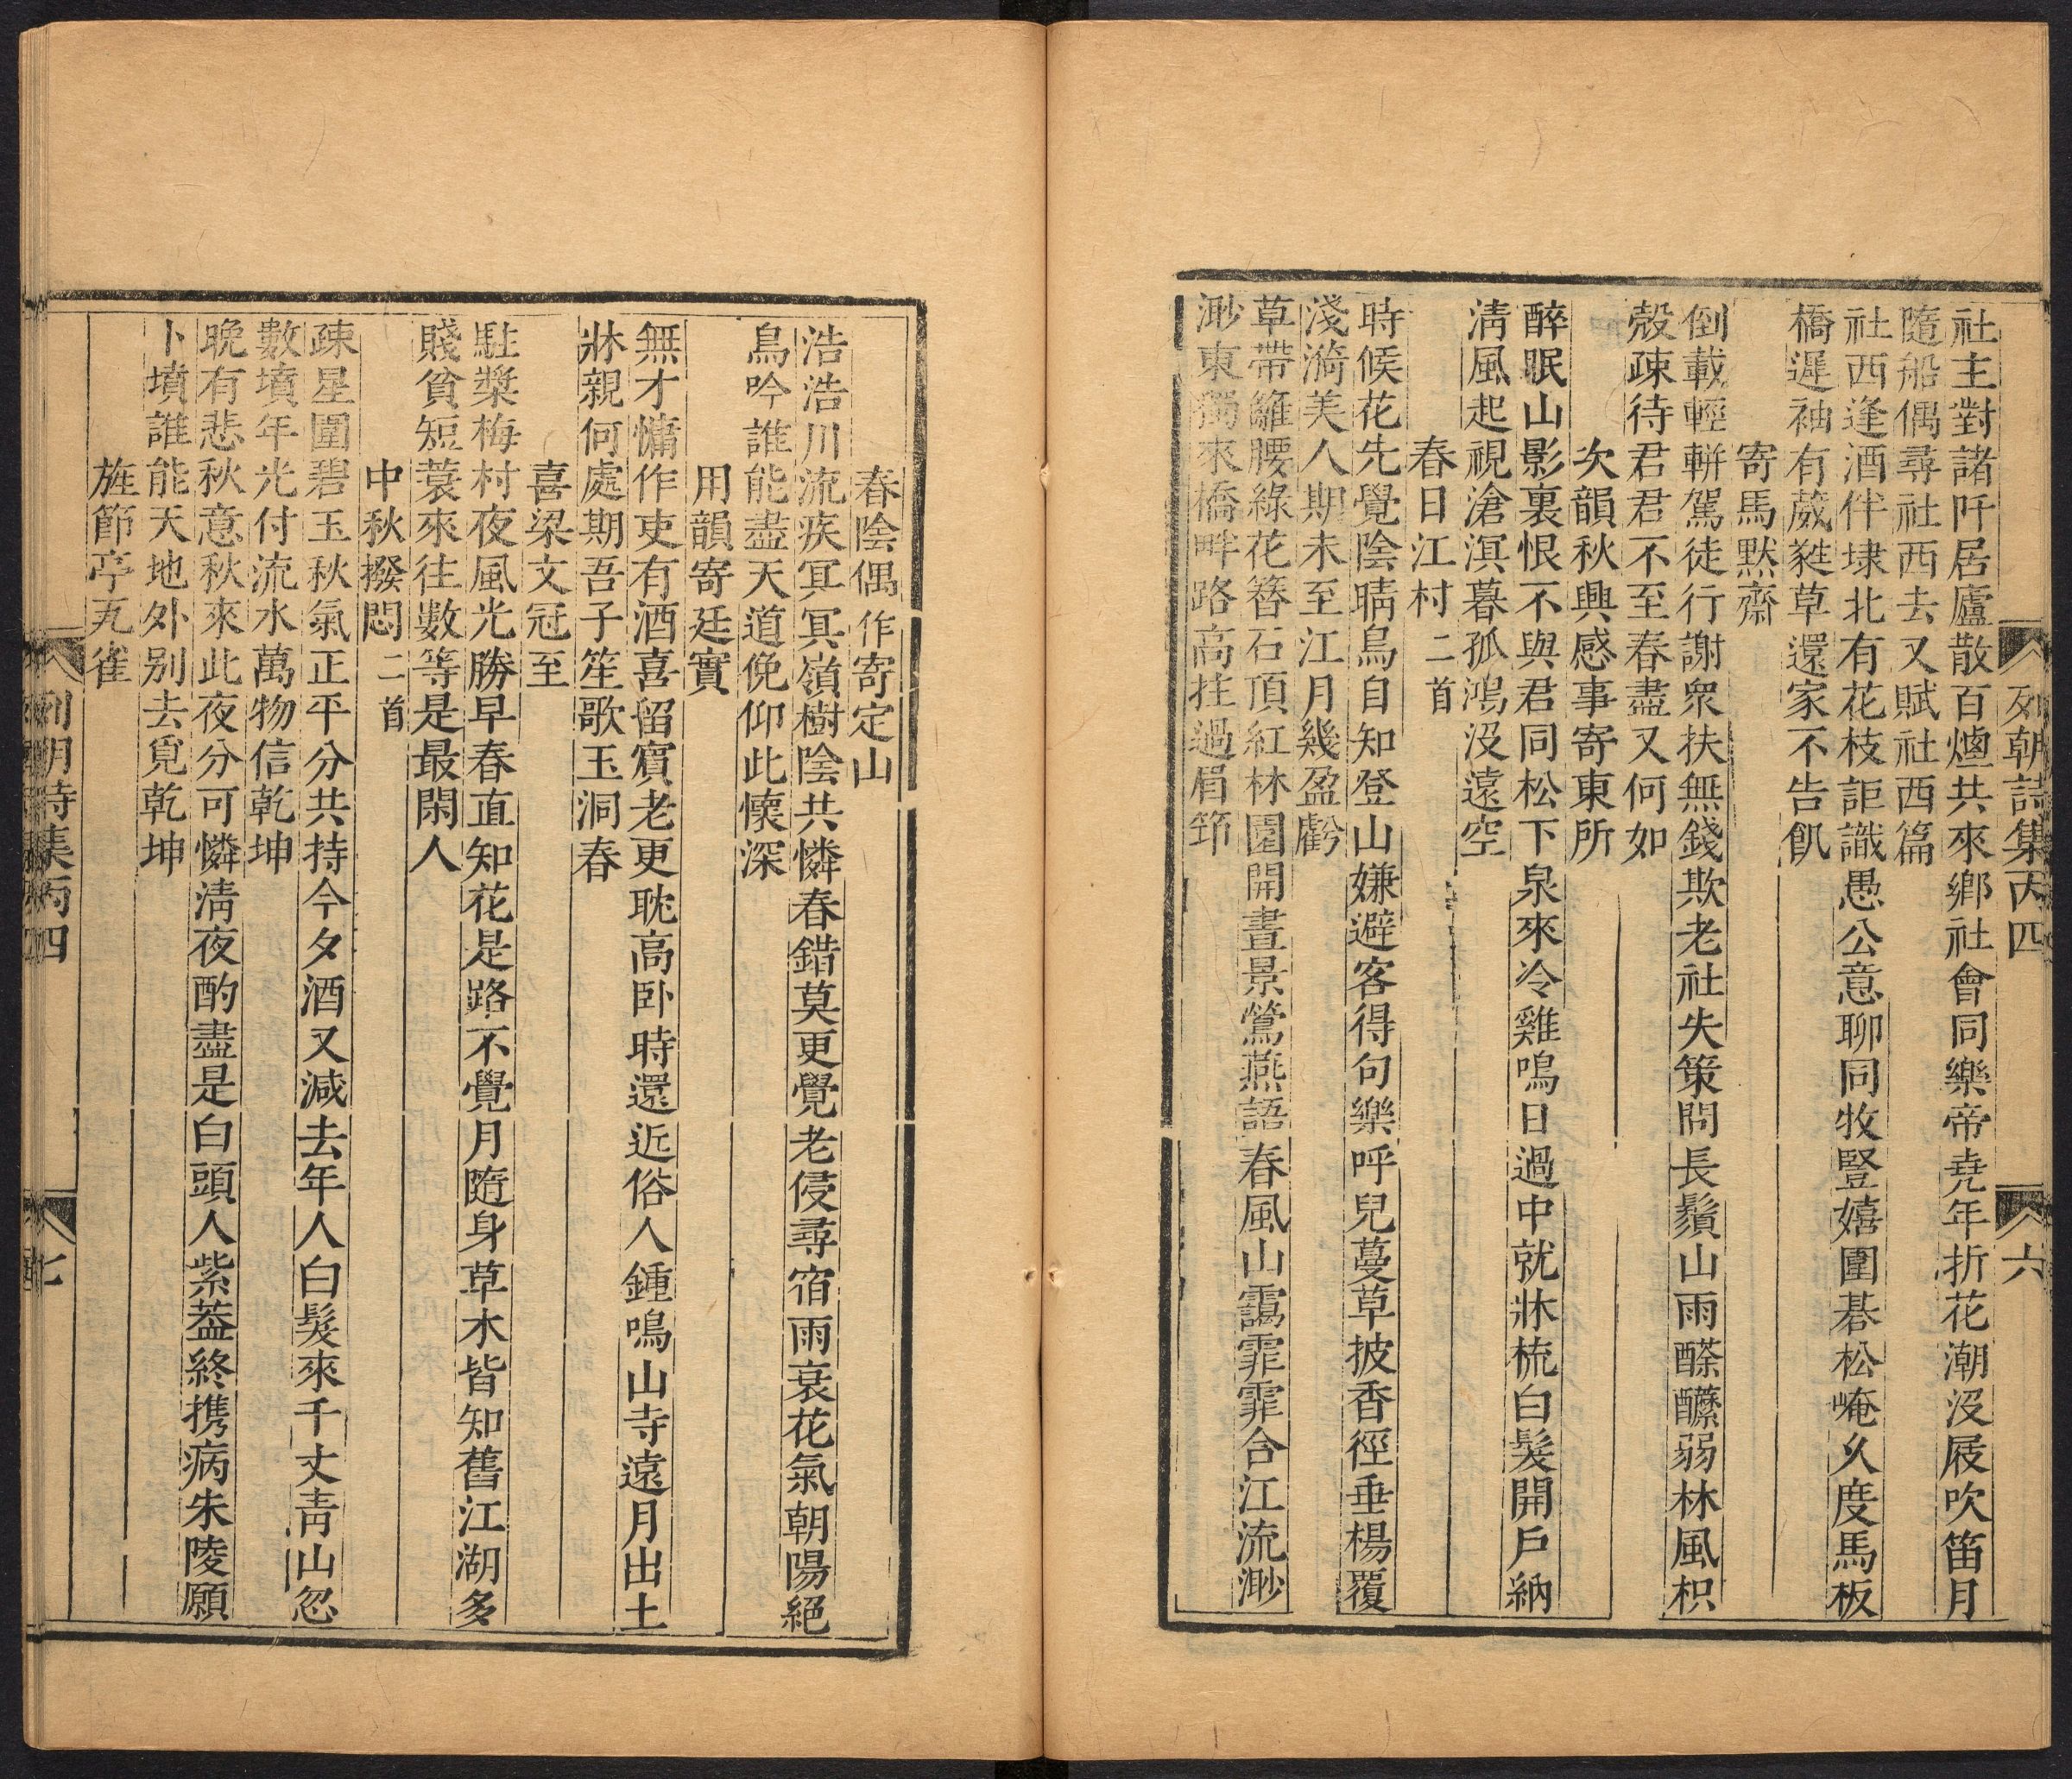 列朝詩集丙四
六
社主對諸阡居廬散百爈共來鄉社會同樂帝堯年折花潮沒屐吹笛月
隨船偶尋社西去又賦社西篇
社西逢酒伴埭北有花枝詎識愚公意聊同牧豎嬉圍碁松崦久度馬板
橋遲袖有葳蕤草還家不告飢
寄馬默齋
倒載輕輧駕徒行謝衆扶無錢欺老社失策問長鬚山雨醛釄弱林風枳
殼疎待君君不至春盡又何如
次韻秋興感事寄東所
醉眠山影裏恨不與君同松下泉來冷雞鳴日過中就牀梳白髮開戶納
淸風起視滄溟暮孤鴻沒遠空
春日江村二首
時候花先覺陰晴鳥自知登山嫌避客得句樂呼兒蔓草披香徑垂楊覆
淺漪美人期未至江月幾盈虧
草帶籬腰綠花簪石頂紅林園開晝景鶯燕語春風山靄霏霏合江流渺
渺東獨來橋畔路高拄過眉筇
春陰偶作寄定山
浩浩川流疾冥冥嶺樹陰共憐春錯莫更覺老侵尋宿雨衰花氣朝陽絕
鳥吟誰能盡天道俛仰此懷深
用韻寄廷實
無才慵作吏有酒喜留賓老更耽高卧時還近俗人鍾鳴山寺遠月出土
牀親何處期吾子笙歌玉洞春
喜梁文冠至
駐槳梅村夜風光勝早春直知花是路不覺月隨身草木皆知舊江湖多
賤貧短蓑來往數等是最閑人
中秋撥悶二首
疎星圍碧玉秋氣正平分共持今夕酒又減去年人白髮來千丈靑山忽
數墳年光付流水萬物信乾坤
晩有悲秋意秋來此夜分可憐淸夜酌盡是白頭人紫葢終携病朱陵願
卜墳誰能天地外別去覓乾坤
旌節亭瓦雀
列朝詩集丙四
七